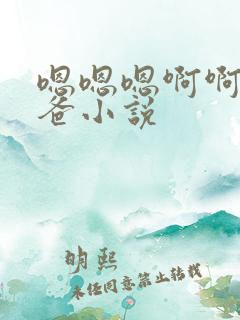 嗯嗯嗯啊啊
爸小説
明熙
未任同意禁止转载